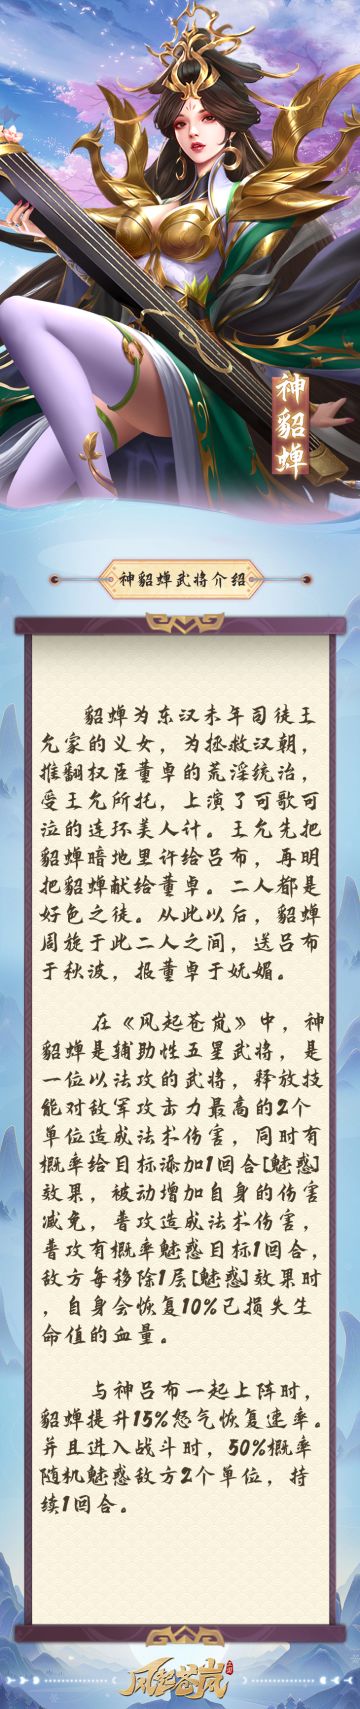 神貂蝉
神貂蝉武将介绍
貂蝉为东汉末年司徒王
允家的义女，为拯救汉朝，
推翻权臣董卓的荒淫统治，
受王允所托，上演了可歌可
泣的连环美人计。王允先把
貂蝉暗地里许给吕布，再明
把貂蝉献给董卓。二人都是
好色之徒。从此以后，貂蝉
周旋于此二人之间，送吕布
于秋波，报董卓于妩媚。
在《风起苍岚》中，神
貂蝉是辅助性五星武将，是
一位以法攻的武将，释放技
能对敌军攻击力最高的2个
单位造成法术伤害，同时有
概率给目标添加1回合[魅惑]
效果，被动增加自身的伤害
减免，普攻造成法术伤害，
普攻有概率魅惑目标1回合，
敌方每移除1层[魅惑]效果时
，自身会恢复10%已损失生
命值的血量。
与神吕布一起上阵时，
貂蝉提升15%怒气恢复速率。
并且进入战斗时，50%概率
随机魅惑敌方2个单位，持
续1回合。
风起苍岚